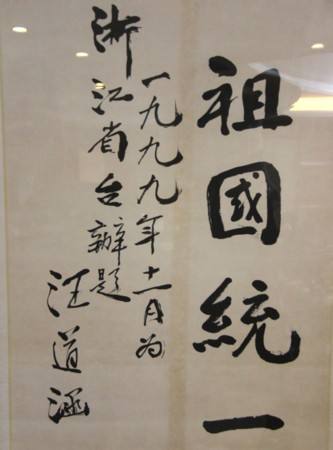 祖國統一
一九九九年十一月为
浙江省台辦題
汪道涵